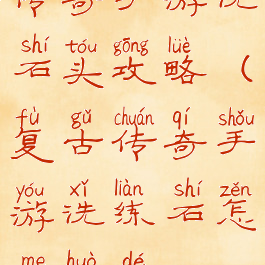 传奇手游洗
shí tóu gōng lüè
石头攻略（
fù gǔ chuán qí shǒu
复古传奇手
yóu xǐ liàn shí zěn
游洗练石怎
me huò dé